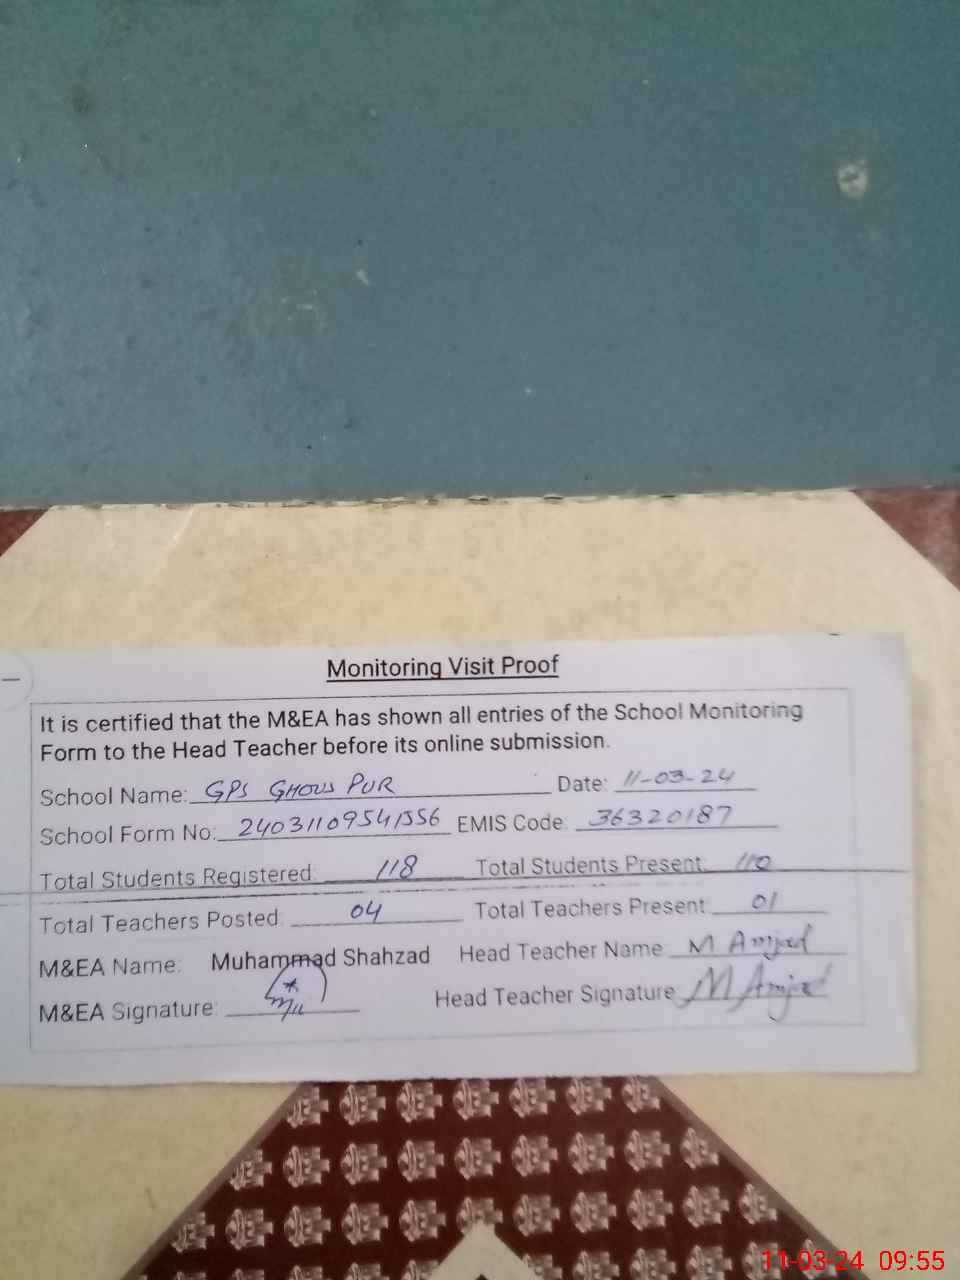 Monitoring Visit Proof
It is certified that the M&EA has shown all entries of the School Monitoring
Form to the Head Teacher before its online submission.
School Name: GPS GHOUS PUR Date: 11-03-24
School Form No: 24031109541556 EMIS Code: 36320187
Total Students Registered: 118 Total Students Present: 110
Total Teachers Posted: 04 Total Teachers Present: 01
M&EA Name: Muhammad Shahzad Head Teacher Name M Amjad
M&EA Signature: Head Teacher Signature M Amjad
11-03-24 09:55